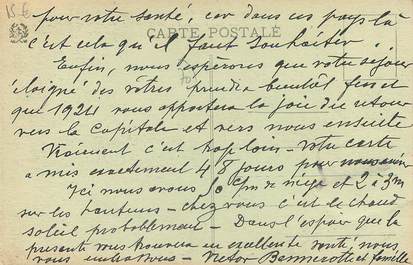 15 6
pour votre santé, car dans ces pays là
CARTE POSTALE
c'est cela qu'il faut souhaiter.
Enfin, nous espérons que votre séjour
éloigné des vôtres prendra bientôt fin et
que 1924 vous apportera la joie du retour
vers la Capitale et vers nous ensuite
Vraiment c'est trop loin – votre carte
a mis exactement 48 jours pour
Ici nous avons de neige et 2 à 3m
sur les hauteurs – chez vous c'est le chaud
soleil probablement – Dans l'espoir que la
présente vous trouvera en excellente santé, nous
vous embrassons – Victor et famille